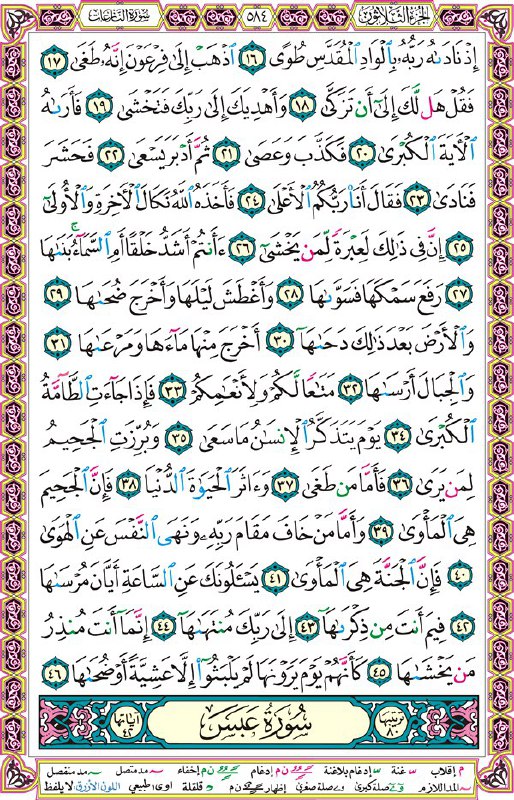 سورة النازعات ٥٨٤ الجزء الثلاثون
إِذْ نَادَىٰهُ رَبُّهُۥ بِٱلْوَادِ ٱلْمُقَدَّسِ طُوًى ١٦ ٱذْهَبْ إِلَىٰ فِرْعَوْنَ إِنَّهُۥ طَغَىٰ ١٧
فَقُلْ هَل لَّكَ إِلَىٰٓ أَن تَزَكَّىٰ ١٨ وَأَهْدِيَكَ إِلَىٰ رَبِّكَ فَتَخْشَىٰ ١٩ فَأَرَىٰهُ
ٱلْأٓيَةَ ٱلْكُبْرَىٰ ٢٠ فَكَذَّبَ وَعَصَىٰ ٢١ ثُمَّ أَدْبَرَ يَسْعَىٰ ٢٢ فَحَشَرَ
فَنَادَىٰ ٢٣ فَقَالَ أَنَا۠ رَبُّكُمُ ٱلْأَعْلَىٰ ٢٤ فَأَخَذَهُ ٱللَّهُ نَكَالَ ٱلْأٓخِرَةِ وَٱلْأُولَىٰٓ
٢٥ إِنَّ فِى ذَٰلِكَ لَعِبْرَةً لِّمَن يَخْشَىٰٓ ٢٦ ءَأَنتُمْ أَشَدُّ خَلْقًا أَمِ ٱلسَّمَآءُ ۚ بَنَىٰهَا
٢٧ رَفَعَ سَمْكَهَا فَسَوَّىٰهَا ٢٨ وَأَغْطَشَ لَيْلَهَا وَأَخْرَجَ ضُحَىٰهَا ٢٩
وَٱلْأَرْضَ بَعْدَ ذَٰلِكَ دَحَىٰهَآ ٣٠ أَخْرَجَ مِنْهَا مَآءَهَا وَمَرْعَىٰهَا ٣١
وَٱلْجِبَالَ أَرْسَىٰهَا ٣٢ مَتَٰعًا لَّكُمْ وَلِأَنْعَٰمِكُمْ ٣٣ فَإِذَا جَآءَتِ ٱلطَّآمَّةُ
ٱلْكُبْرَىٰ ٣٤ يَوْمَ يَتَذَكَّرُ ٱلْإِنسَٰنُ مَا سَعَىٰ ٣٥ وَبُرِّزَتِ ٱلْجَحِيمُ
لِمَن يَرَىٰ ٣٦ فَأَمَّا مَن طَغَىٰ ٣٧ وَءَاثَرَ ٱلْحَيَوٰةَ ٱلدُّنْيَا ٣٨ فَإِنَّ ٱلْجَحِيمَ
هِىَ ٱلْمَأْوَىٰ ٣٩ وَأَمَّا مَنْ خَافَ مَقَامَ رَبِّهِۦ وَنَهَى ٱلنَّفْسَ عَنِ ٱلْهَوَىٰ
٤٠ فَإِنَّ ٱلْجَنَّةَ هِىَ ٱلْمَأْوَىٰ ٤١ يَسْـَٔلُونَكَ عَنِ ٱلسَّاعَةِ أَيَّانَ مُرْسَىٰهَا
٤٢ فِيمَ أَنتَ مِن ذِكْرَىٰهَآ ٤٣ إِلَىٰ رَبِّكَ مُنتَهَىٰهَآ ٤٤ إِنَّمَآ أَنتَ مُنذِرُ
مَن يَخْشَىٰهَا ٤٥ كَأَنَّهُمْ يَوْمَ يَرَوْنَهَا لَمْ يَلْبَثُوٓا۟ إِلَّا عَشِيَّةً أَوْ ضُحَىٰهَا ٤٦
ترتيبها ٨٠ سورة عبس آياتها ٤٢
م إقلاب غنة إدغام بلاغنة ن م إدغام ن م إخفاء مد متصل مد منفصل
المد اللازم صلة كبرى صلة صغرى إظهار ن م قلقلة أوى طبيعي اللون الأزرق لا يلفظ